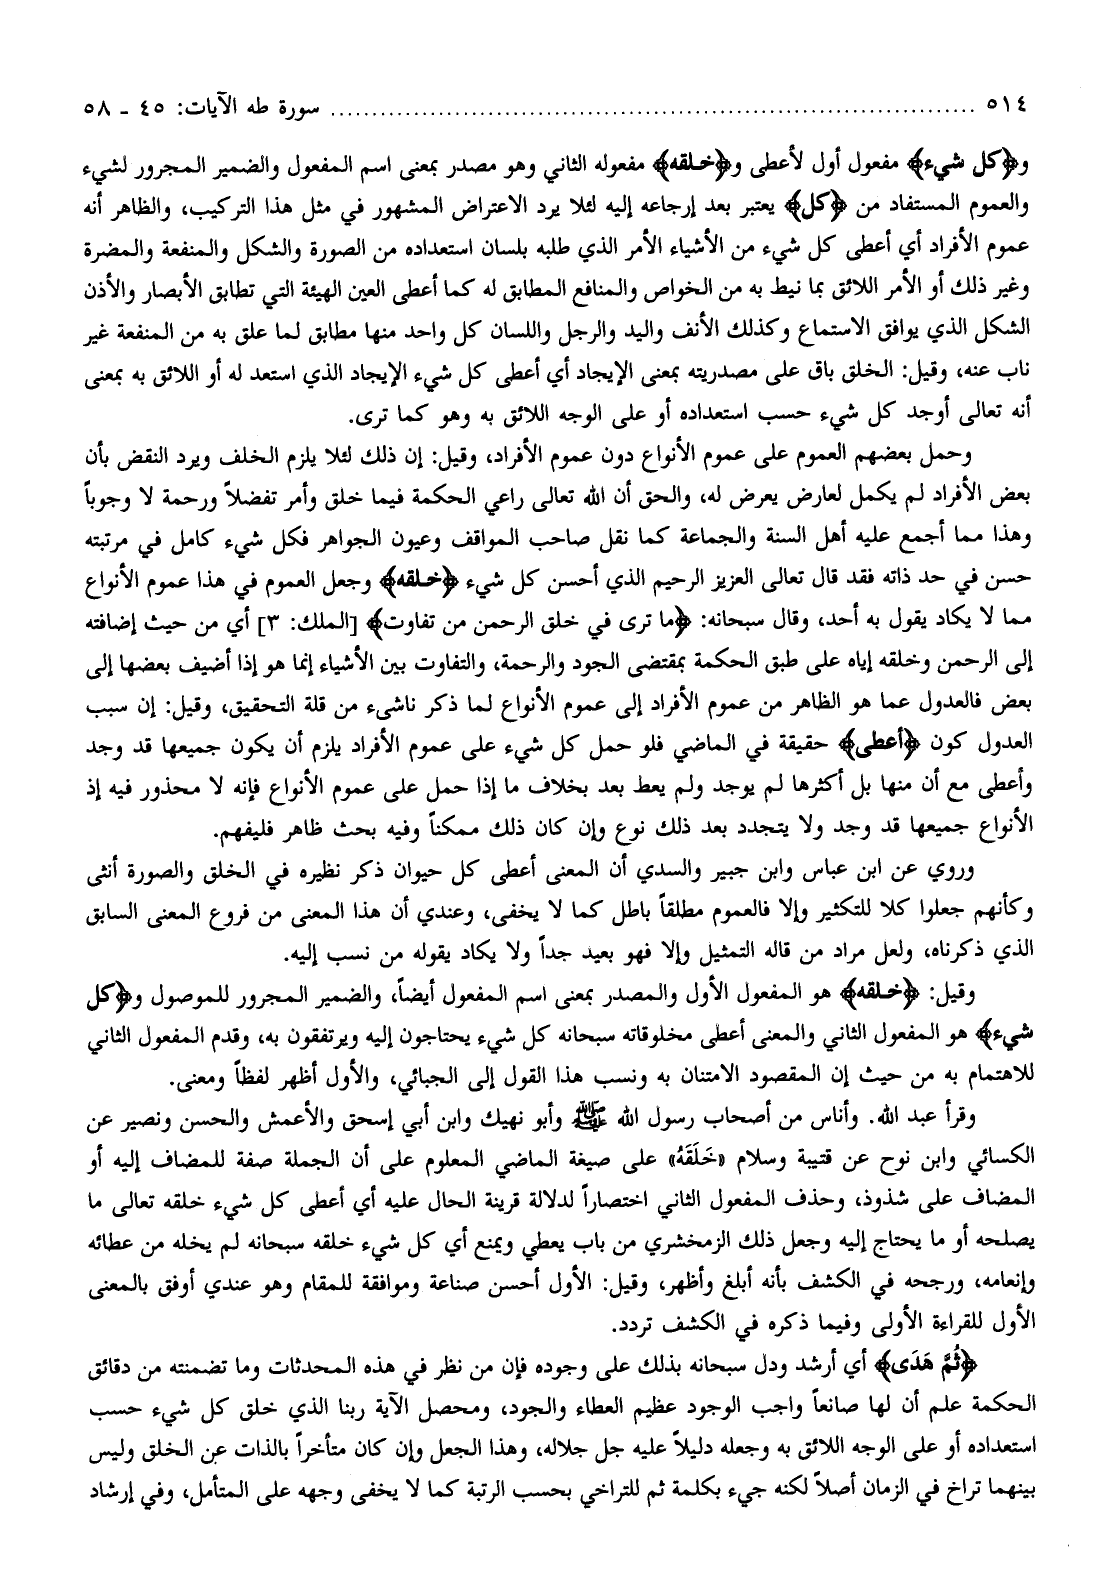 ٥١٤ ........................................ سورة طه الآيات: ٤٥ ـ ٥٨
و﴿كل شيء﴾ مفعول أول لأعطى و﴿خلقه﴾ مفعوله الثاني وهو مصدر بمعنى اسم المفعول والضمير المجرور لشيء
والعموم المستفاد من ﴿كل﴾ يعتبر بعد إرجاعه إليه لئلا يرد الاعتراض المشهور في مثل هذا التركيب، والظاهر أنه
عموم الأفراد أي أعطى كل شيء من الأشياء الأمر الذي طلبه بلسان استعداده من الصورة والشكل والمنفعة والمضرة
وغير ذلك أو الأمر اللائق بما نيط به من الخواص والمنافع المطابق له كما أعطى العين الهيئة التي تطابق الأبصار والأذن
الشكل الذي يوافق الاستماع وكذلك الأنف واليد والرجل واللسان كل واحد منها مطابق لما علق به من المنفعة غير
ناب عنه، وقيل: الخلق باق على مصدريته بمعنى الإيجاد أي أعطى كل شيء الإيجاد الذي استعد له أو اللائق به بمعنى
أنه تعالى أوجد كل شيء حسب استعداده أو على الوجه اللائق به وهو كما ترى.
وحمل بعضهم العموم على عموم الأنواع دون عموم الأفراد، وقيل: إن ذلك لئلا يلزم الخلف ويرد النقض بأن
بعض الأفراد لم يكمل لعارض يعرض له، والحق أن الله تعالى راعي الحكمة فيما خلق وأمر تفضلاً ورحمة لا وجوباً
وهذا مما أجمع عليه أهل السنة والجماعة كما نقل صاحب المواقف وعيون الجواهر فكل شيء كامل في مرتبته
حسن في حد ذاته فقد قال تعالى العزيز الرحيم الذي أحسن كل شيء ﴿خلقه﴾ وجعل العموم في هذا عموم الأنواع
مما لا يكاد يقول به أحد، وقال سبحانه: ﴿ما ترى في خلق الرحمن من تفاوت﴾ [الملك: ٣] أي من حيث إضافته
إلى الرحمن وخلقه إياه على طبق الحكمة بمقتضى الجود والرحمة، والتفاوت بين الأشياء إنما هو إذا أضيف بعضها إلى
بعض فالعدول عما هو الظاهر من عموم الأفراد إلى عموم الأنواع لما ذكر ناشىء من قلة التحقيق، وقيل: إن سبب
العدول كون ﴿أعطى﴾ حقيقة في الماضي فلو حمل كل شيء على عموم الأفراد يلزم أن يكون جميعها قد وجد
وأعطى مع أن منها بل أكثرها لم يوجد ولم يعط بعد بخلاف ما إذا حمل على عموم الأنواع فإنه لا محذور فيه إذ
الأنواع جميعها قد وجد ولا يتجدد بعد ذلك نوع وإن كان ذلك ممكناً وفيه بحث ظاهر فليفهم.
وروي عن ابن عباس وابن جبير والسدي أن المعنى أعطى كل حيوان ذكر نظيره في الخلق والصورة أنثى
وكأنهم جعلوا كلا للتكثير وإلا فالعموم مطلقاً باطل كما لا يخفى، وعندي أن هذا المعنى من فروع المعنى السابق
الذي ذكرناه، ولعل مراد من قاله التمثيل وإلا فهو بعيد جداً ولا يكاد يقوله من نسب إليه.
وقيل: ﴿خلقه﴾ هو المفعول الأول والمصدر بمعنى اسم المفعول أيضاً، والضمير المجرور للموصول و﴿كل
شيء﴾ هو المفعول الثاني والمعنى أعطى مخلوقاته سبحانه كل شيء يحتاجون إليه ويرتفقون به، وقدم المفعول الثاني
للاهتمام به من حيث إن المقصود الامتنان به ونسب هذا القول إلى الجبائي، والأول أظهر لفظاً ومعنى.
وقرأ عبد الله. وأناس من أصحاب رسول الله ﷺ وأبو نهيك وابن أبي إسحق والأعمش والحسن ونصير عن
الكسائي وابن نوح عن قتيبة وسلام «خَلَقَهُ» على صيغة الماضي المعلوم على أن الجملة صفة للمضاف إليه أو
المضاف على شذوذ، وحذف المفعول الثاني اختصاراً لدلالة قرينة الحال عليه أي أعطى كل شيء خلقه تعالى ما
يصلحه أو ما يحتاج إليه وجعل ذلك الزمخشري من باب يعطي ويمنع أي كل شيء خلقه سبحانه لم يخله من عطائه
وإنعامه، ورجحه في الكشف بأنه أبلغ وأظهر، وقيل: الأول أحسن صناعة وموافقة للمقام وهو عندي أوفق بالمعنى
الأول للقراءة الأولى وفيما ذكره في الكشف تردد.
﴿ثُمَّ هَدَى﴾ أي أرشد ودل سبحانه بذلك على وجوده فإن من نظر في هذه المحدثات وما تضمنته من دقائق
الحكمة علم أن لها صانعاً واجب الوجود عظيم العطاء والجود، ومحصل الآية ربنا الذي خلق كل شيء حسب
استعداده أو على الوجه اللائق به وجعله دليلاً عليه جل جلاله، وهذا الجعل وإن كان متأخراً بالذات عن الخلق وليس
بينهما تراخ في الزمان أصلاً لكنه جيء بكلمة ثم للتراخي بحسب الرتبة كما لا يخفى وجهه على المتأمل، وفي إرشاد